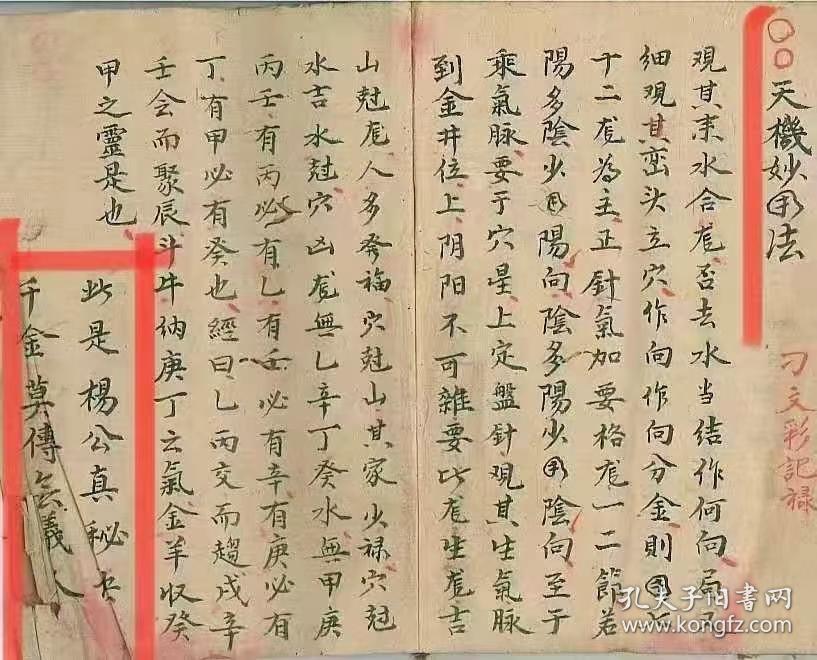 〇〇天機妙用法
刁文彩記禄
觀其来水合龙否去水当结作何向局
细观其峦头立穴作向作向分金則用
十二龙為主正針氣加要格龙一二節若
陽多陰少用陽向陰多陽少用陰向至于
乘氣脉要于穴星上定盤針觀其生氣脉
到金井位上阴阳不可雜要比龙生龙吉
山尅龙人多發福穴尅山其家少禄穴尅
水吉水尅穴凶龙無乙辛丁癸水無甲庚
丙壬有丙必有乙有壬必有辛有庚必有
丁有甲必有癸也經曰乙丙交而趨戌辛
壬会而聚辰斗牛纳庚丁之氣金羊收癸
甲之靈是也
此是楊公真秘
千金莫傳人
孔夫子旧書网
www.kongfz.com